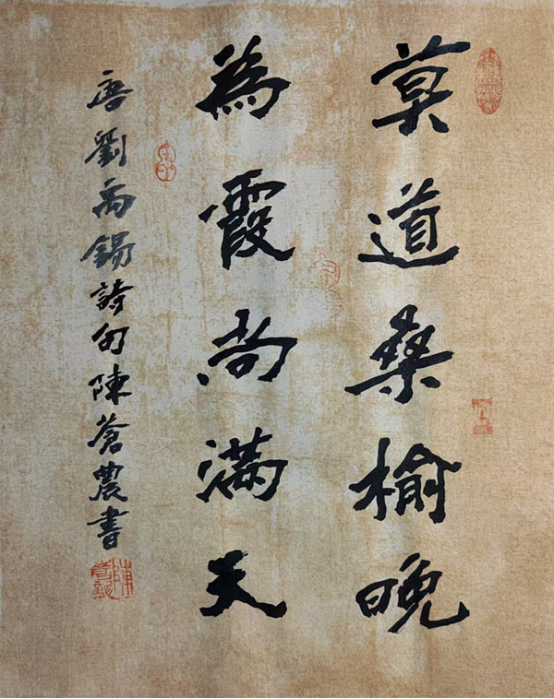 莫道桑榆晚
為霞尚滿天
唐劉禹錫詩句陳蒼農書